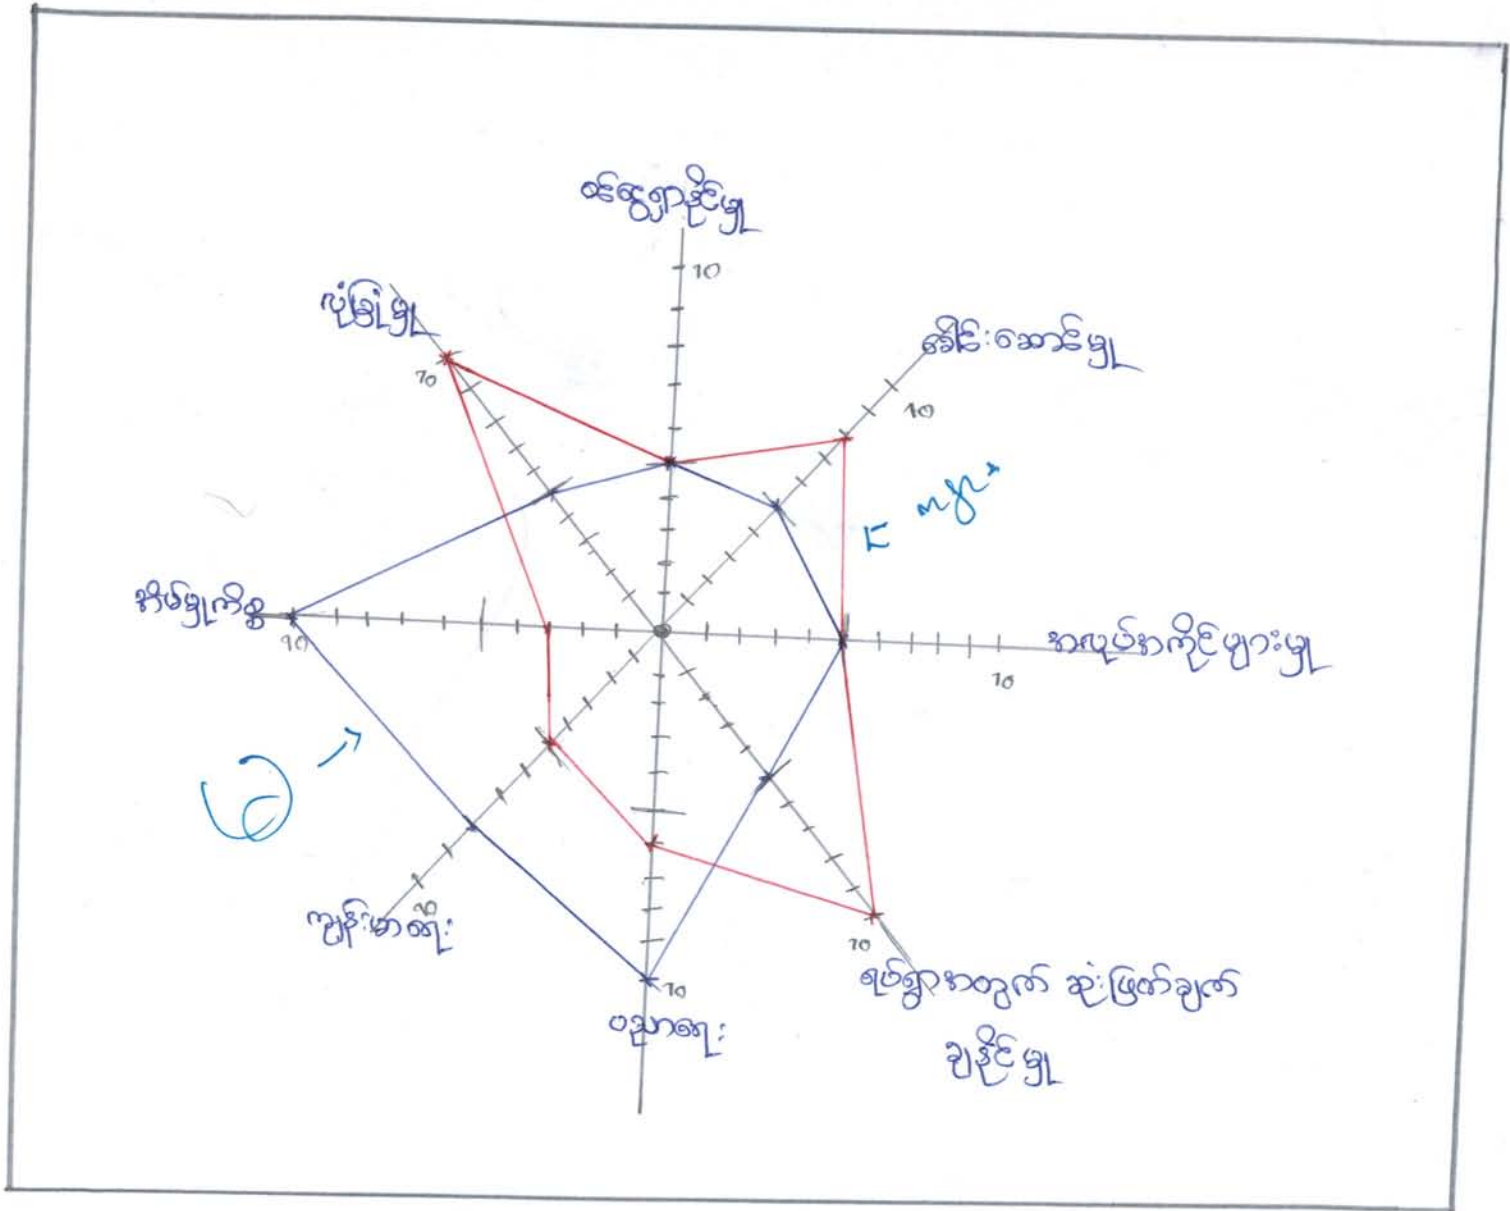 ဝင်ငွေရှာနိုင်မှု
10
လုံခြုံမှု
10
ခေါင်းဆောင်မှု
10
ကျား
အိမ်မှုကိစ္စ
10
အလုပ်အကိုင်များမှု
10
မ
ကျန်းမာရေး
10
10
ပညာရေး
10
ရပ်ရွာအတွက် ဆုံးဖြတ်ချက်
ချနိုင်မှု